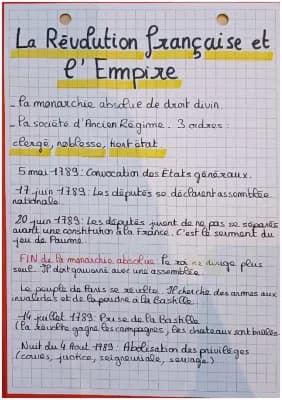 La Révolution française et
l'Empire
- La monarchie absolue de droit divin.
- La société d'Ancien Régime. 3 ordres:
clergé, noblesse, tiers état
5 mai 1789: Convocation des Etats généraux.
17 juin 1789: Les députés se déclarent assemblée
nationale.
20 juin 1789: Les députés jurent de ne pas se séparés
avant une constitution à la France. C'est le serment du
jeu de Paume.
FIN de la monarchie absolue. Le roi ne dirige plus
seul. Il doit gouverner avec une assemblée.
Le peuple de Paris se révolte. Il cherche des armes aux
invalides et de la poudre à la Bastille.
14 juillet 1789: Prise de la Bastille
(La révolte gagne les campagnes, les chateaux sont brûlés.
Nuit du 4 Aout 1789: Abolisation des privilèges
(cours, justice, seigneuriale, servage)